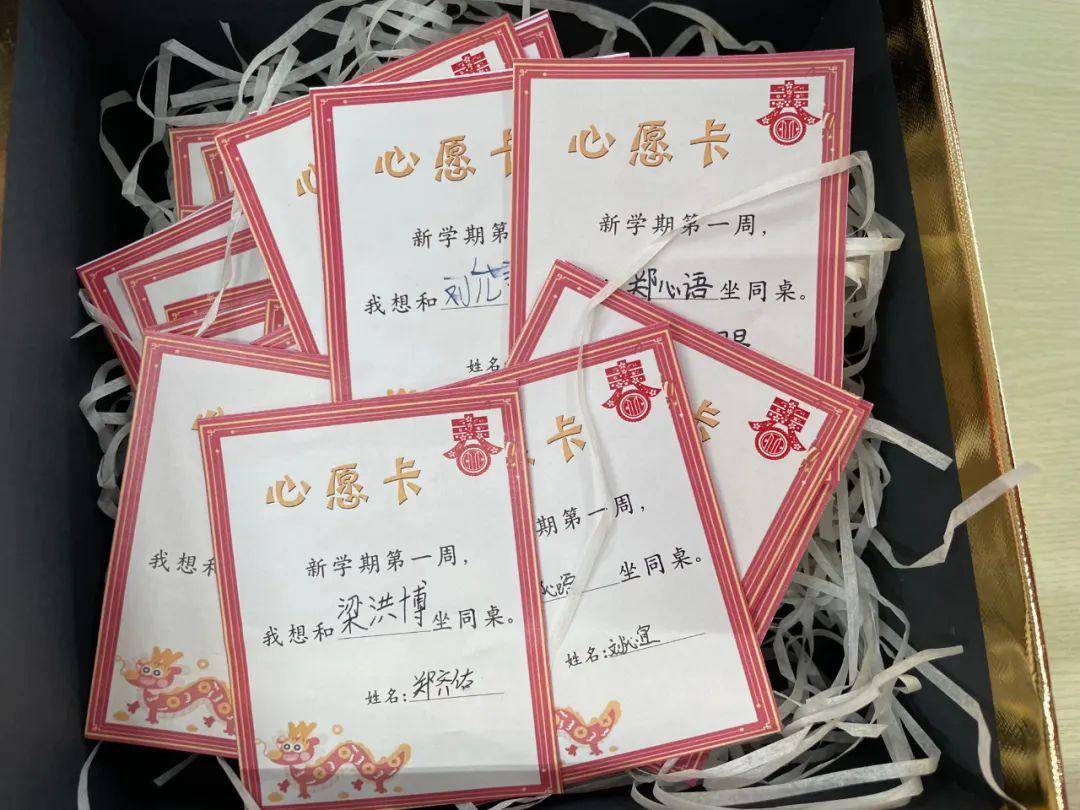 心愿卡
新学期第
我想和刘
姓名
春
心愿卡
新学期第一周,
郑心语坐同桌。
我想和
春
心愿卡
新学期第一周,
我想和梁洪博坐同桌。
姓名:郑齐佑
春
卡
期第一周,
坐同桌。
姓名:刘心宜
春
卡
春